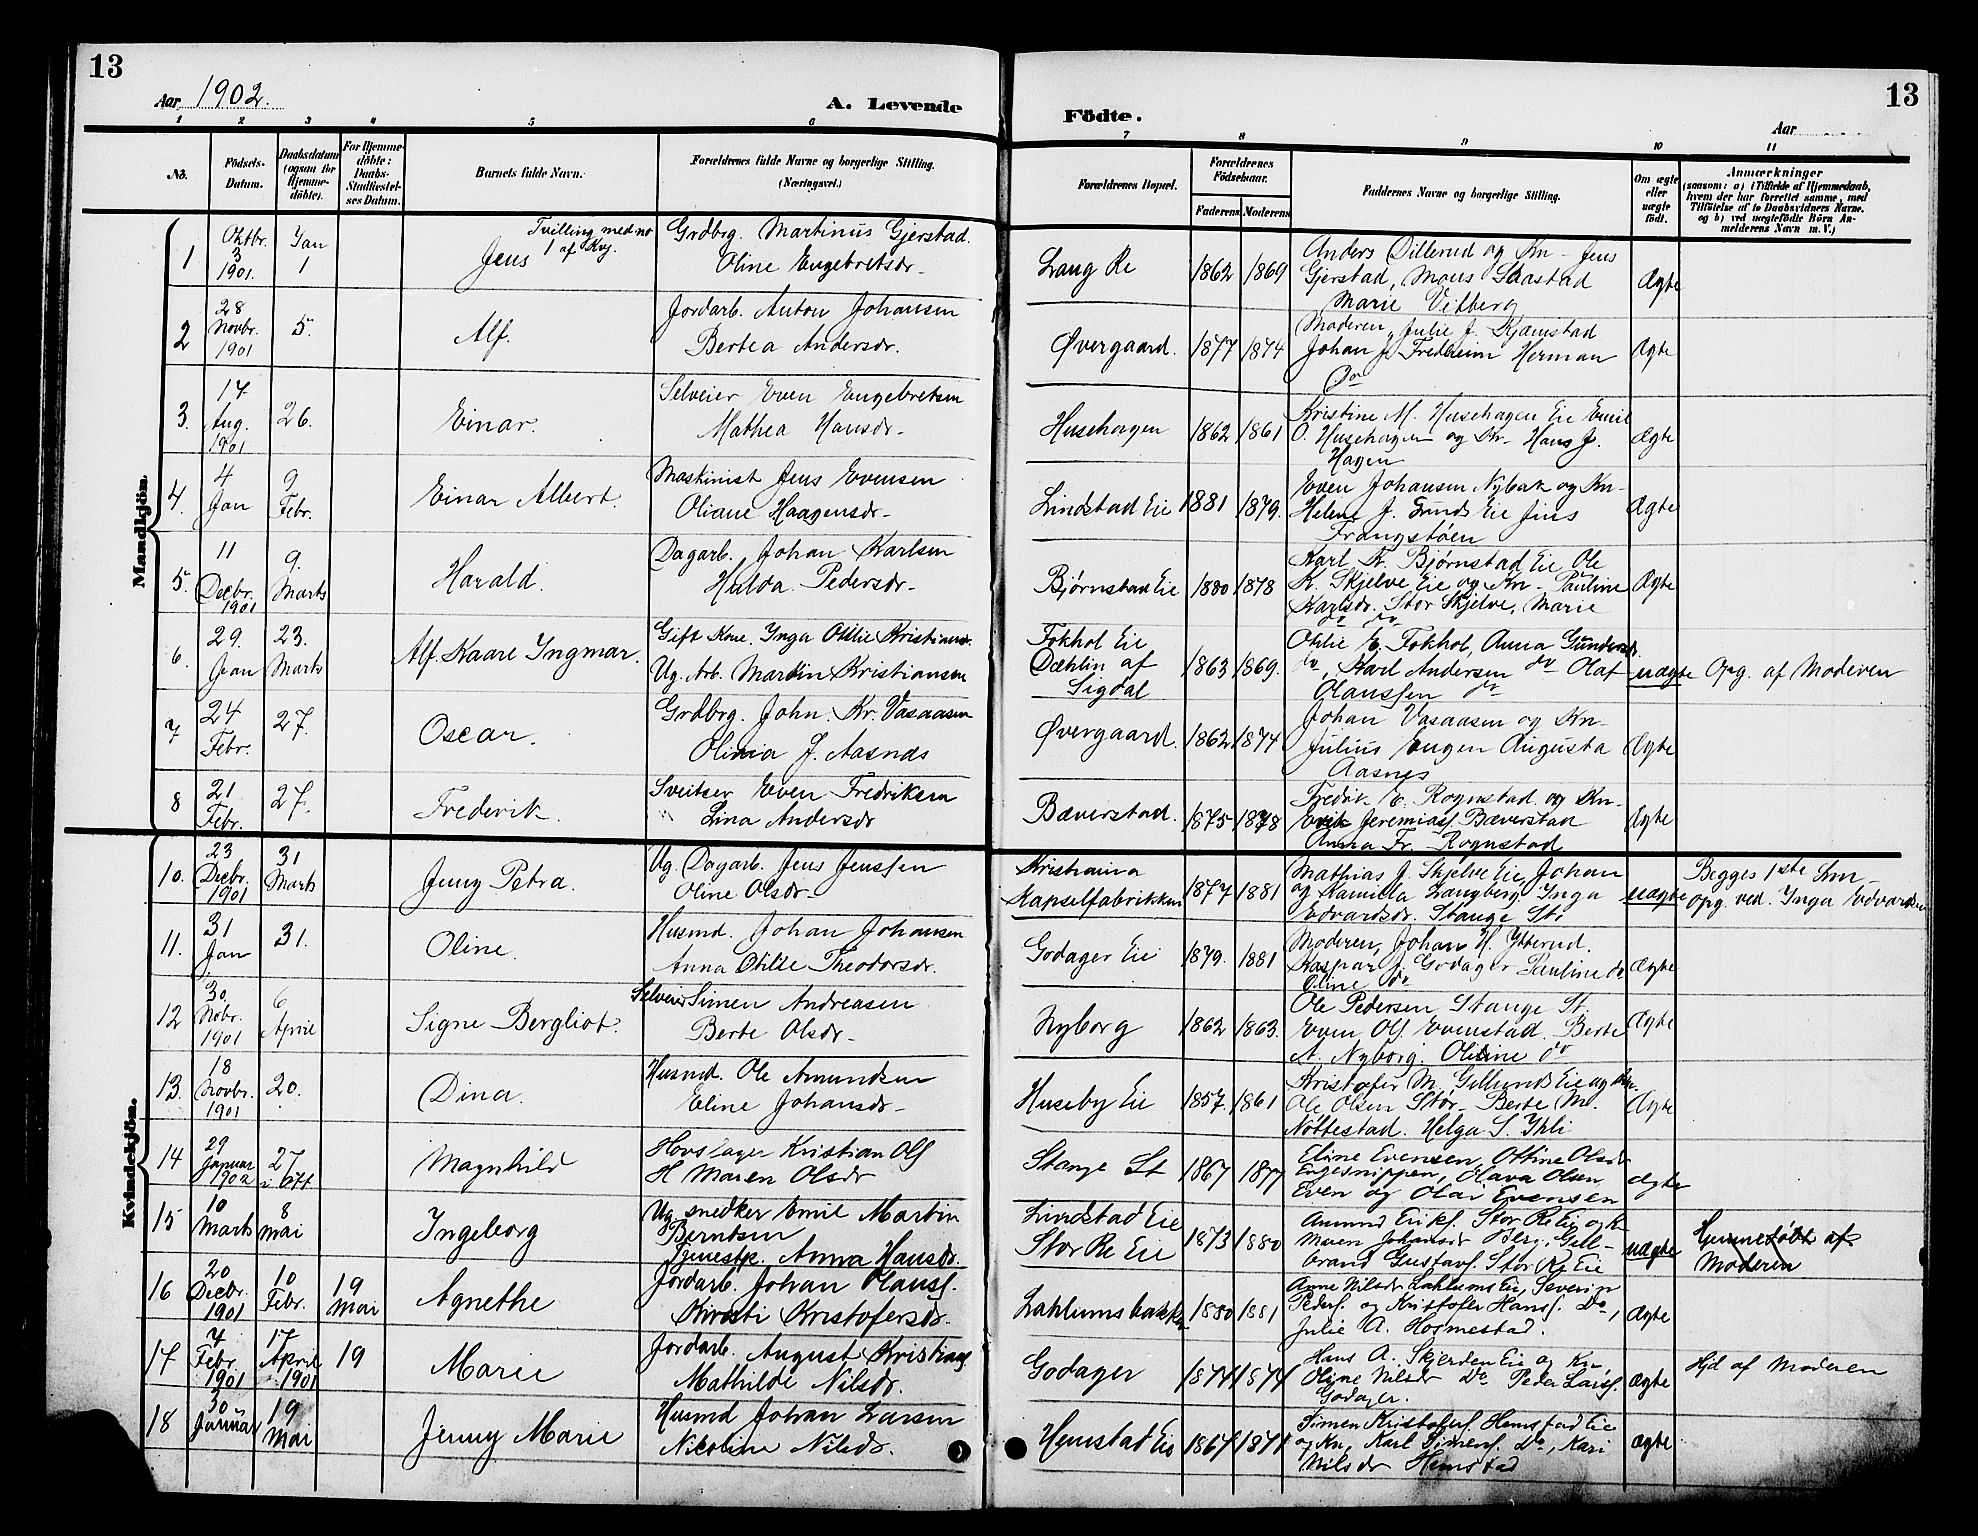 13
Aar 1902.
A. Levende
1 2 3 4 5 6
No.
Födsels-Datum.
Daabsdatum (ogsaa for Hjemme-döbte).
For Hjemme-döbte: Daabs-Stadfæstel-ses Datum.
Barnets fulde Navn.
Forældrenes fulde Navne og borgerlige Stilling. (Næringsvei.)
Födte.
13
Aar
7 8 9 10 11
Forældrenes Bopæl.
Forældrenes Födselsaar.
Faderens Moderens
Faddernes Navne og borgerlige Stilling.
Om ægte eller uægte født.
Anmærkninger
(saasom: a) i Tilfælde af Hjemmedaab, hvem der har forrettet samme, med Tilföielse af to Daabsvidners Navne, og b) ved uægtefödte Börn Anmelderens Navn m. V.)
Mandkjön.
1 Oktbr. 3 1901. Jan 1 Jens Tvilling med no 1 af Kvj. Grdbrg. Martinus Gjerstad. Oline Engebretsdr. Lang Re 1862 1869 Anders Dillerud og Kn- Jens Gjerstad, Mons Saastad Marie Vitberg Ægte
2 28 Novbr. 1901 5. Alf. Jordarb. Anton Johansen Bertea Andersdr. Øvergaard. 1877 1874 Moderen, Julie J. Kjæmstad Johan J. Fredheim Herman do Ægte
3. 17 Aug. 1901 26. Einar. Selveier Even Engebretsen Mathea Hansdr- Husehagen 1862 1861 Kristine M. Husehagen Eie Emil O. Husehagen og Kn- Hans J. Hagen Ægte
4. 4 Jan 9 Febr. Einar Albert. Maskinist Jens Evensen Oliane Haagensdr- Lindstad Eie 1881 1879. Even Johansen Nybak og Kn- Helene J. Lunds Eie Jens Frangstøen Ægte
5. 11 Decbr. 1901 9. Marts Harald. Dagarb. Johan Karlsen Hulda Pedersdr- Bjørnstad Eie 1880 1878 Karl Fr. Bjørnstad Eie Ole K. Skjelve Eie og Kn- Pauline Karlsdr. Stor Skjelve, Marie do do Ægte
6. 29. Jan 23. Marts Alf Kaare Ingmar. Gift Kone Inga Otilie Kristiansdr. Ug. Arb. Martin Kristiansen Fokhol Eie Dæhlin af Sigdal 1863 1869. Otilie E. Fokhol, Anna Gundersdr. do, Karl Andersen do Olaf Olaussen do uægte Opg. af Moderen
7 24 Febr. 27. Oscar. Grdbrg. John. Kr. Vasaasen Olina J. Aasnæs Øvergaard. 1862 1874 Johan Vasaasen og Kn- Julius Eugen Augusta Aasnes Ægte
8 21 Febr. 27. Frederik. Sveitser Even Fredriksen Lina Andersdr Bæverstad. 1875 1878 Fredrik E. Rognstad og Kn- Erik Jeremiasf Bæverstad Anna Fr. Rognstad Ægte
Kvindekjön.
10. 23 Decbr. 1901 31 Marts Jenny Petra. Ug. Dagarb. Jens Jenssen Oline Olsdr- Kristiania Kapselfabrikken 1877 1881 Mathias J. Skjelve Eie, Johan og Kamilla Langberg. Inga Edvardsdr. Stange St. uægte Begges 1ste Kn- Opg. ved. Inga Edvardsen
11. 31 Jan 31. Oline. Husmd. Johan Johansen Anna Otilie Theodorsdr. Godager Eie 1879. 1881 Moderen, Johan H. Ytterud. Kaspar J. Godager Pauline do Oline do Ægte
12 30 Nobr. 1901 6 April Signe Bergliot. Selveier Simen Andreasen Berte Olsdr- Nyborg 1862 1863. Ole Pedersen, Stange St. Even Ols. Evenstad. Berte A. Nyborg. Oline do Ægte
13. 18 Novbr. 1901 20. Dina. Husmd. Ole Amundsen Eline Johansdr- Huseby Eie 1857. 1861 Kristofer M. Gillunds Eie og Kn. Ole Olsen Stør- Berte M. Nöttestad. Helga S. Ihli Ægte
14 29 Januar 1902 27 i 6ft Magnhild Hovslager Kristian Ols H Maren Olsdr Stange St 1867 1877 Eline Evensen, Ottine Olsdr Engesnippen, Olava Olsen, Even og Olai Evensen ægte
15 10 Marts 8 Mai Ingeborg Ug. snedker Emil Martin Berntsen Tjenestp. Anna Hansdr. Lindstad Eie Stor Re Eie 1873 1880 Amund Eriks. Stor Re Eie og K Maren Johansdr Berg, Gulbrand Gustavs. Stor Re Eie uægte Hjemmedøbt af Moderen
16 20 Decbr. 1901 10 Febr. 19 Mai Agnethe Jordarb. Johan Olauss. Kirsti Kristofersdr. Lahlumsbakken 1880 1881 Anne Nilsdr Lahlums Eie, Severin Peders. og Kristofer Hans. Do, Julie A. Hosmestad. Ægte
17 4 Febr. 1901 17 April 1901 19 Marie Jordarb. August Kristians Mathilde Nilsdr. Godager 1874 1874 Hans A. Skjerden Eie og Kn, Oline Nilsdr Do Peder Lars. Godager. ægte Hjd af Moderen
18 30 Januar 19 Mai Jenny Marie Husmd Johan Larsen Nicoline Nilsdr. Hemstad Eie 1867 1871 Simen Kristofers Hemstad Eie og Kn, Karl Simens. Do, Kari Nilsdr Hemstad ægte